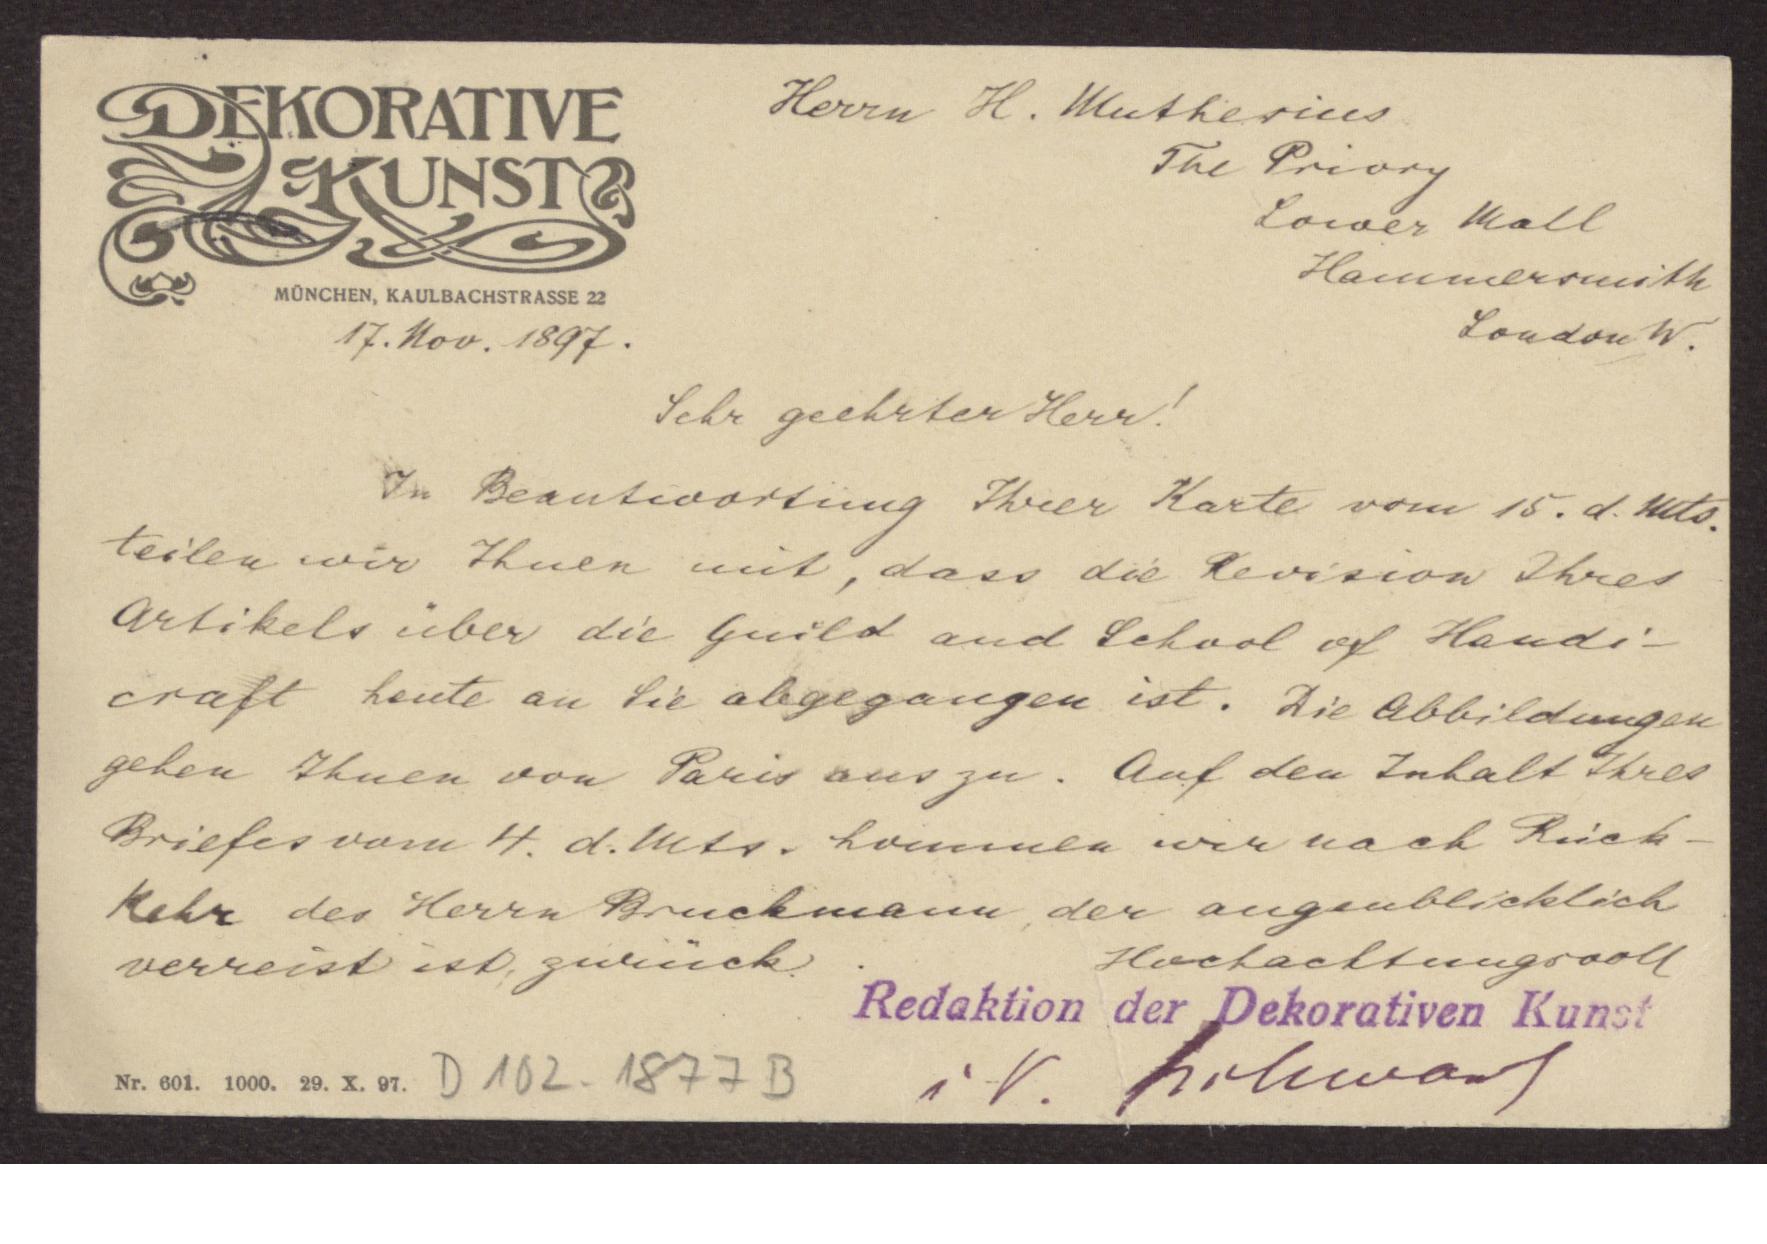 DEKORATIVE
KUNST
MÜNCHEN, KAULBACHSTRASSE 22
17. Nov. 1897.
Herrn H. Muthesius
The Priory
Lower Mall
Hammersmith
London W.
Sehr geehrter Herr!
In Beantwortung Ihrer Karte vom 15. d. Mts.
teilen wir Ihnen mit, dass die Revision Ihres
Artikels über die Guild and School of Handi-
craft heute an Sie abgegangen ist. Die Abbildungen
gehen Ihnen von Paris aus zu. Auf den Inhalt Ihres
Briefes vom 4. d. Mts. kommen wir nach Rück-
kehr des Herrn Bruckmann, der augenblicklich
verreist ist, zurück.
Hochachtungsvoll
Redaktion der Dekorativen Kunst
i. V.
Nr. 601. 1000. 29. X. 97.
D 102-1877 B